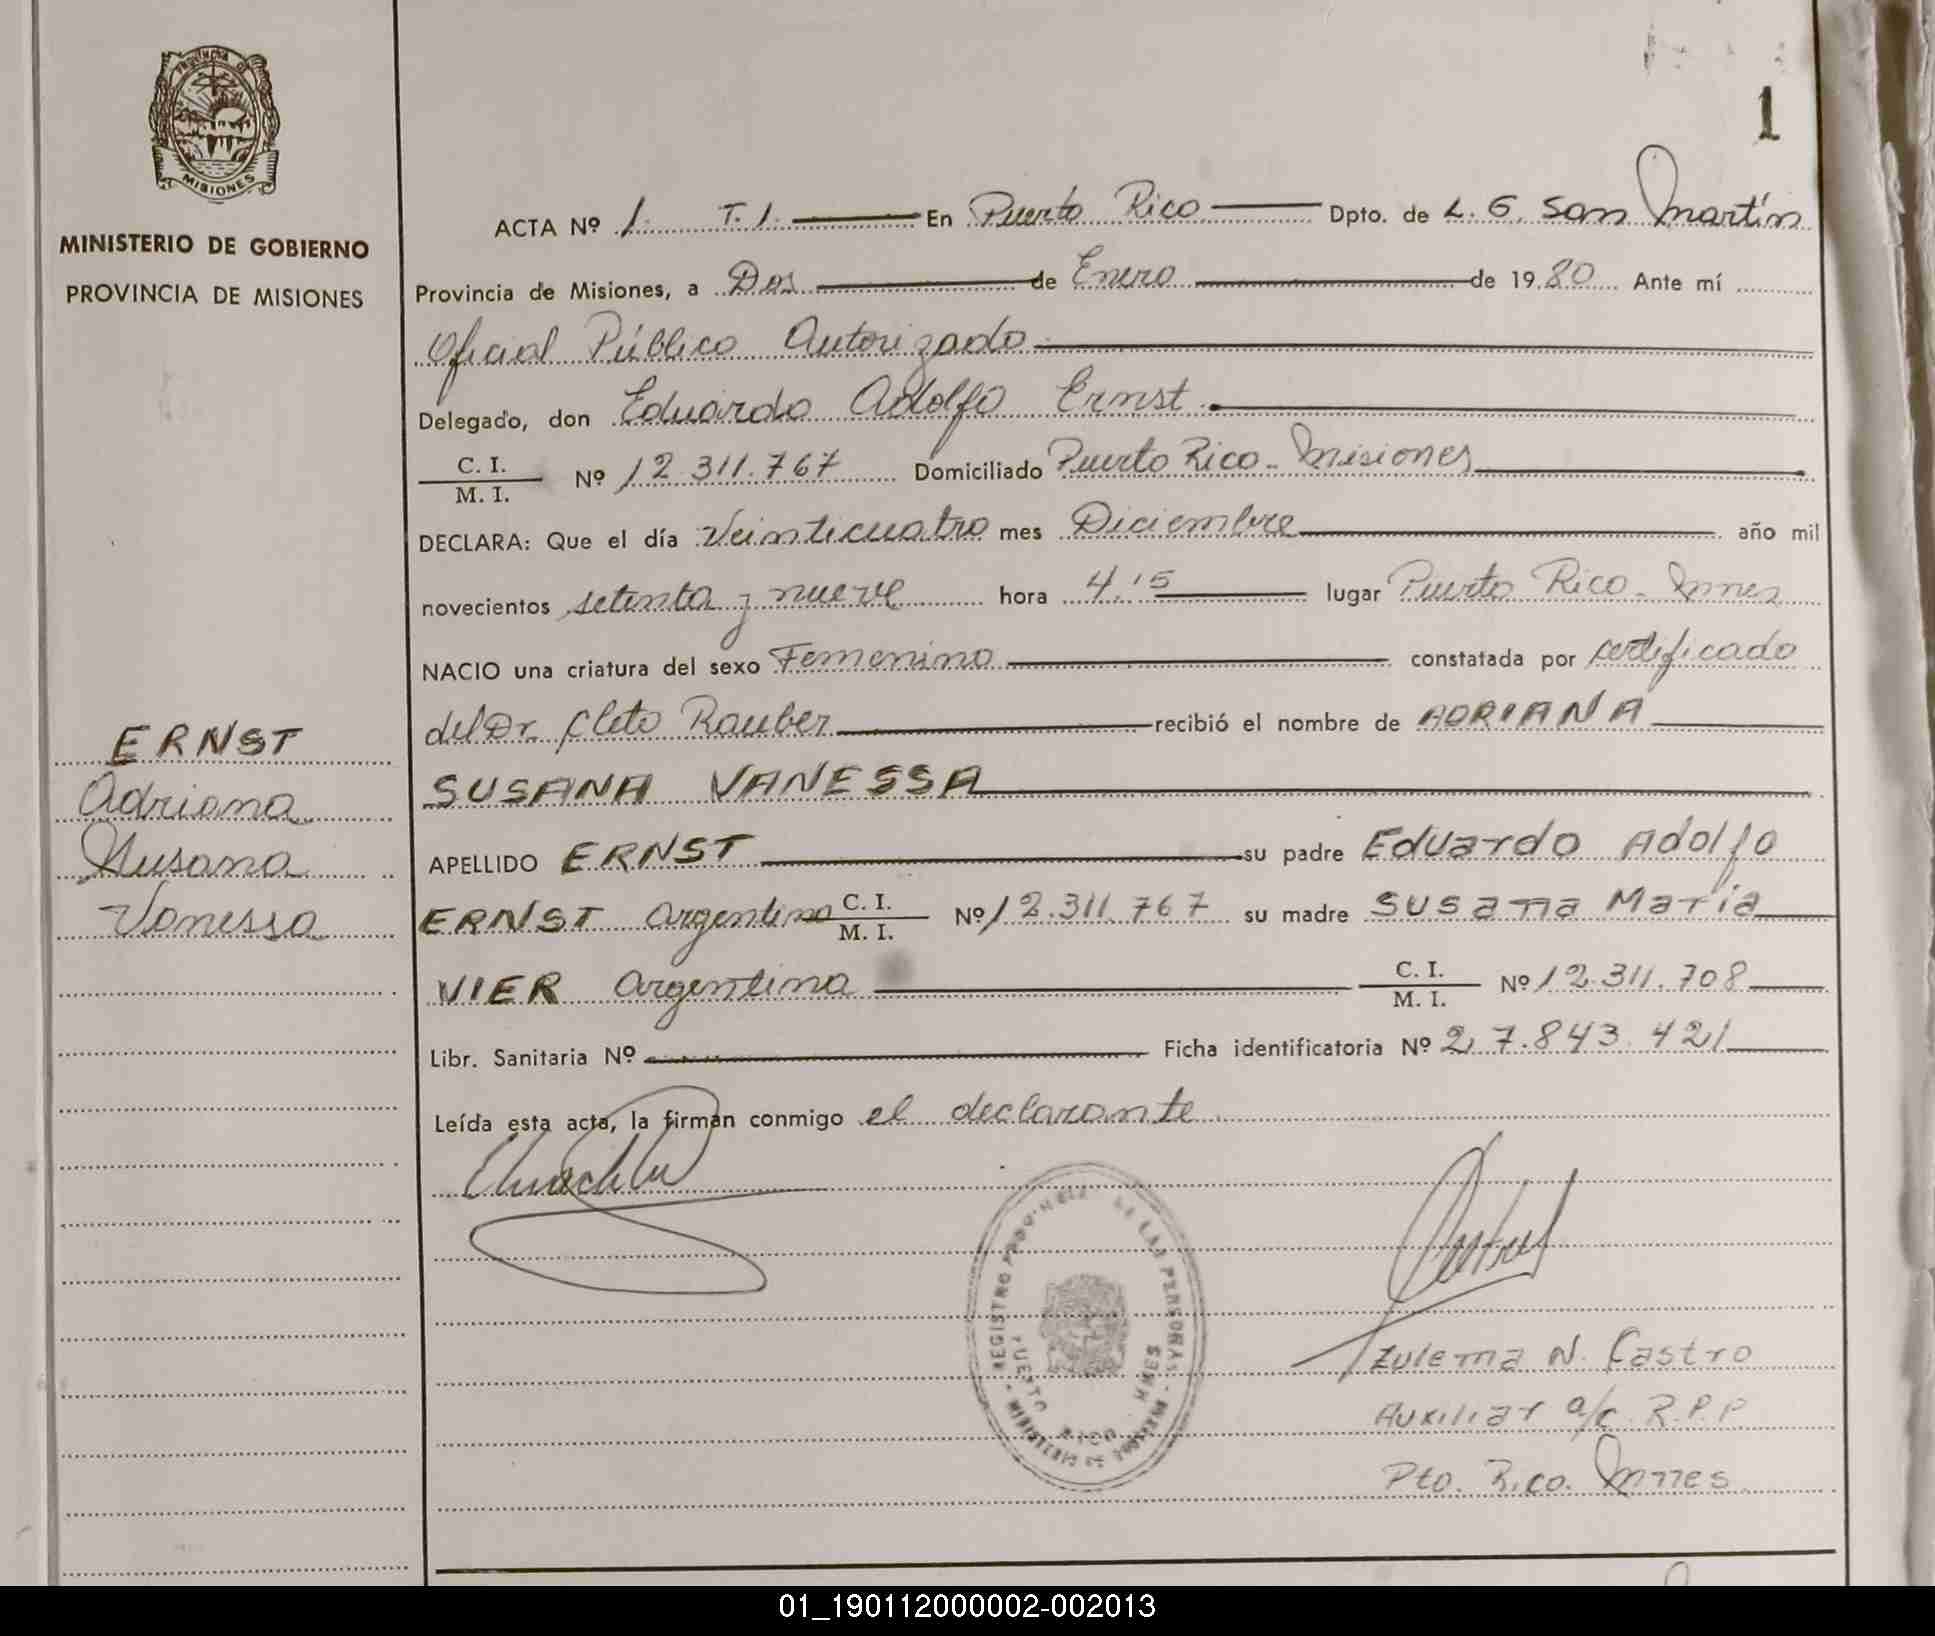 1
PROVINCIA DE
MISIONES
MINISTERIO DE GOBIERNO
PROVINCIA DE MISIONES
ERNST
Adriana
Susana
Vanessa
ACTA Nº 1. T. 1. En Puerto Rico Dpto. de L. G. San Martín
Provincia de Misiones, a Dos de Enero de 1980 Ante mí
Oficial Público Autorizado
Delegado, don Eduardo Adolfo Ernst
C. I.
M. I. Nº 12.311.767 Domiciliado Puerto Rico - Misiones
DECLARA: Que el día Veinticuatro mes Diciembre año mil
novecientos setenta y nueve hora 4.15 lugar Puerto Rico - Mnes
NACIO una criatura del sexo Femenino constatada por certificado
del Dr. Cleto Rauber recibió el nombre de ADRIANA
SUSANA VANESSA
APELLIDO ERNST su padre Eduardo Adolfo
ERNST argentino C. I.
M. I. Nº 12.311.767 su madre Susana María
VIER argentina C. I.
M. I. Nº 12.311.708
Libr. Sanitaria Nº Ficha identificatoria Nº 27.843.421
Leída esta acta, la firman conmigo el declarante
REGISTRO PROVINCIAL DE LAS PERSONAS
PUERTO RICO MNES
MINISTERIO DE GOBIERNO
Zulema N. Castro
Auxiliar a/c. R.P.P.
Pto. Rico. Mnes
01_190112000002-002013